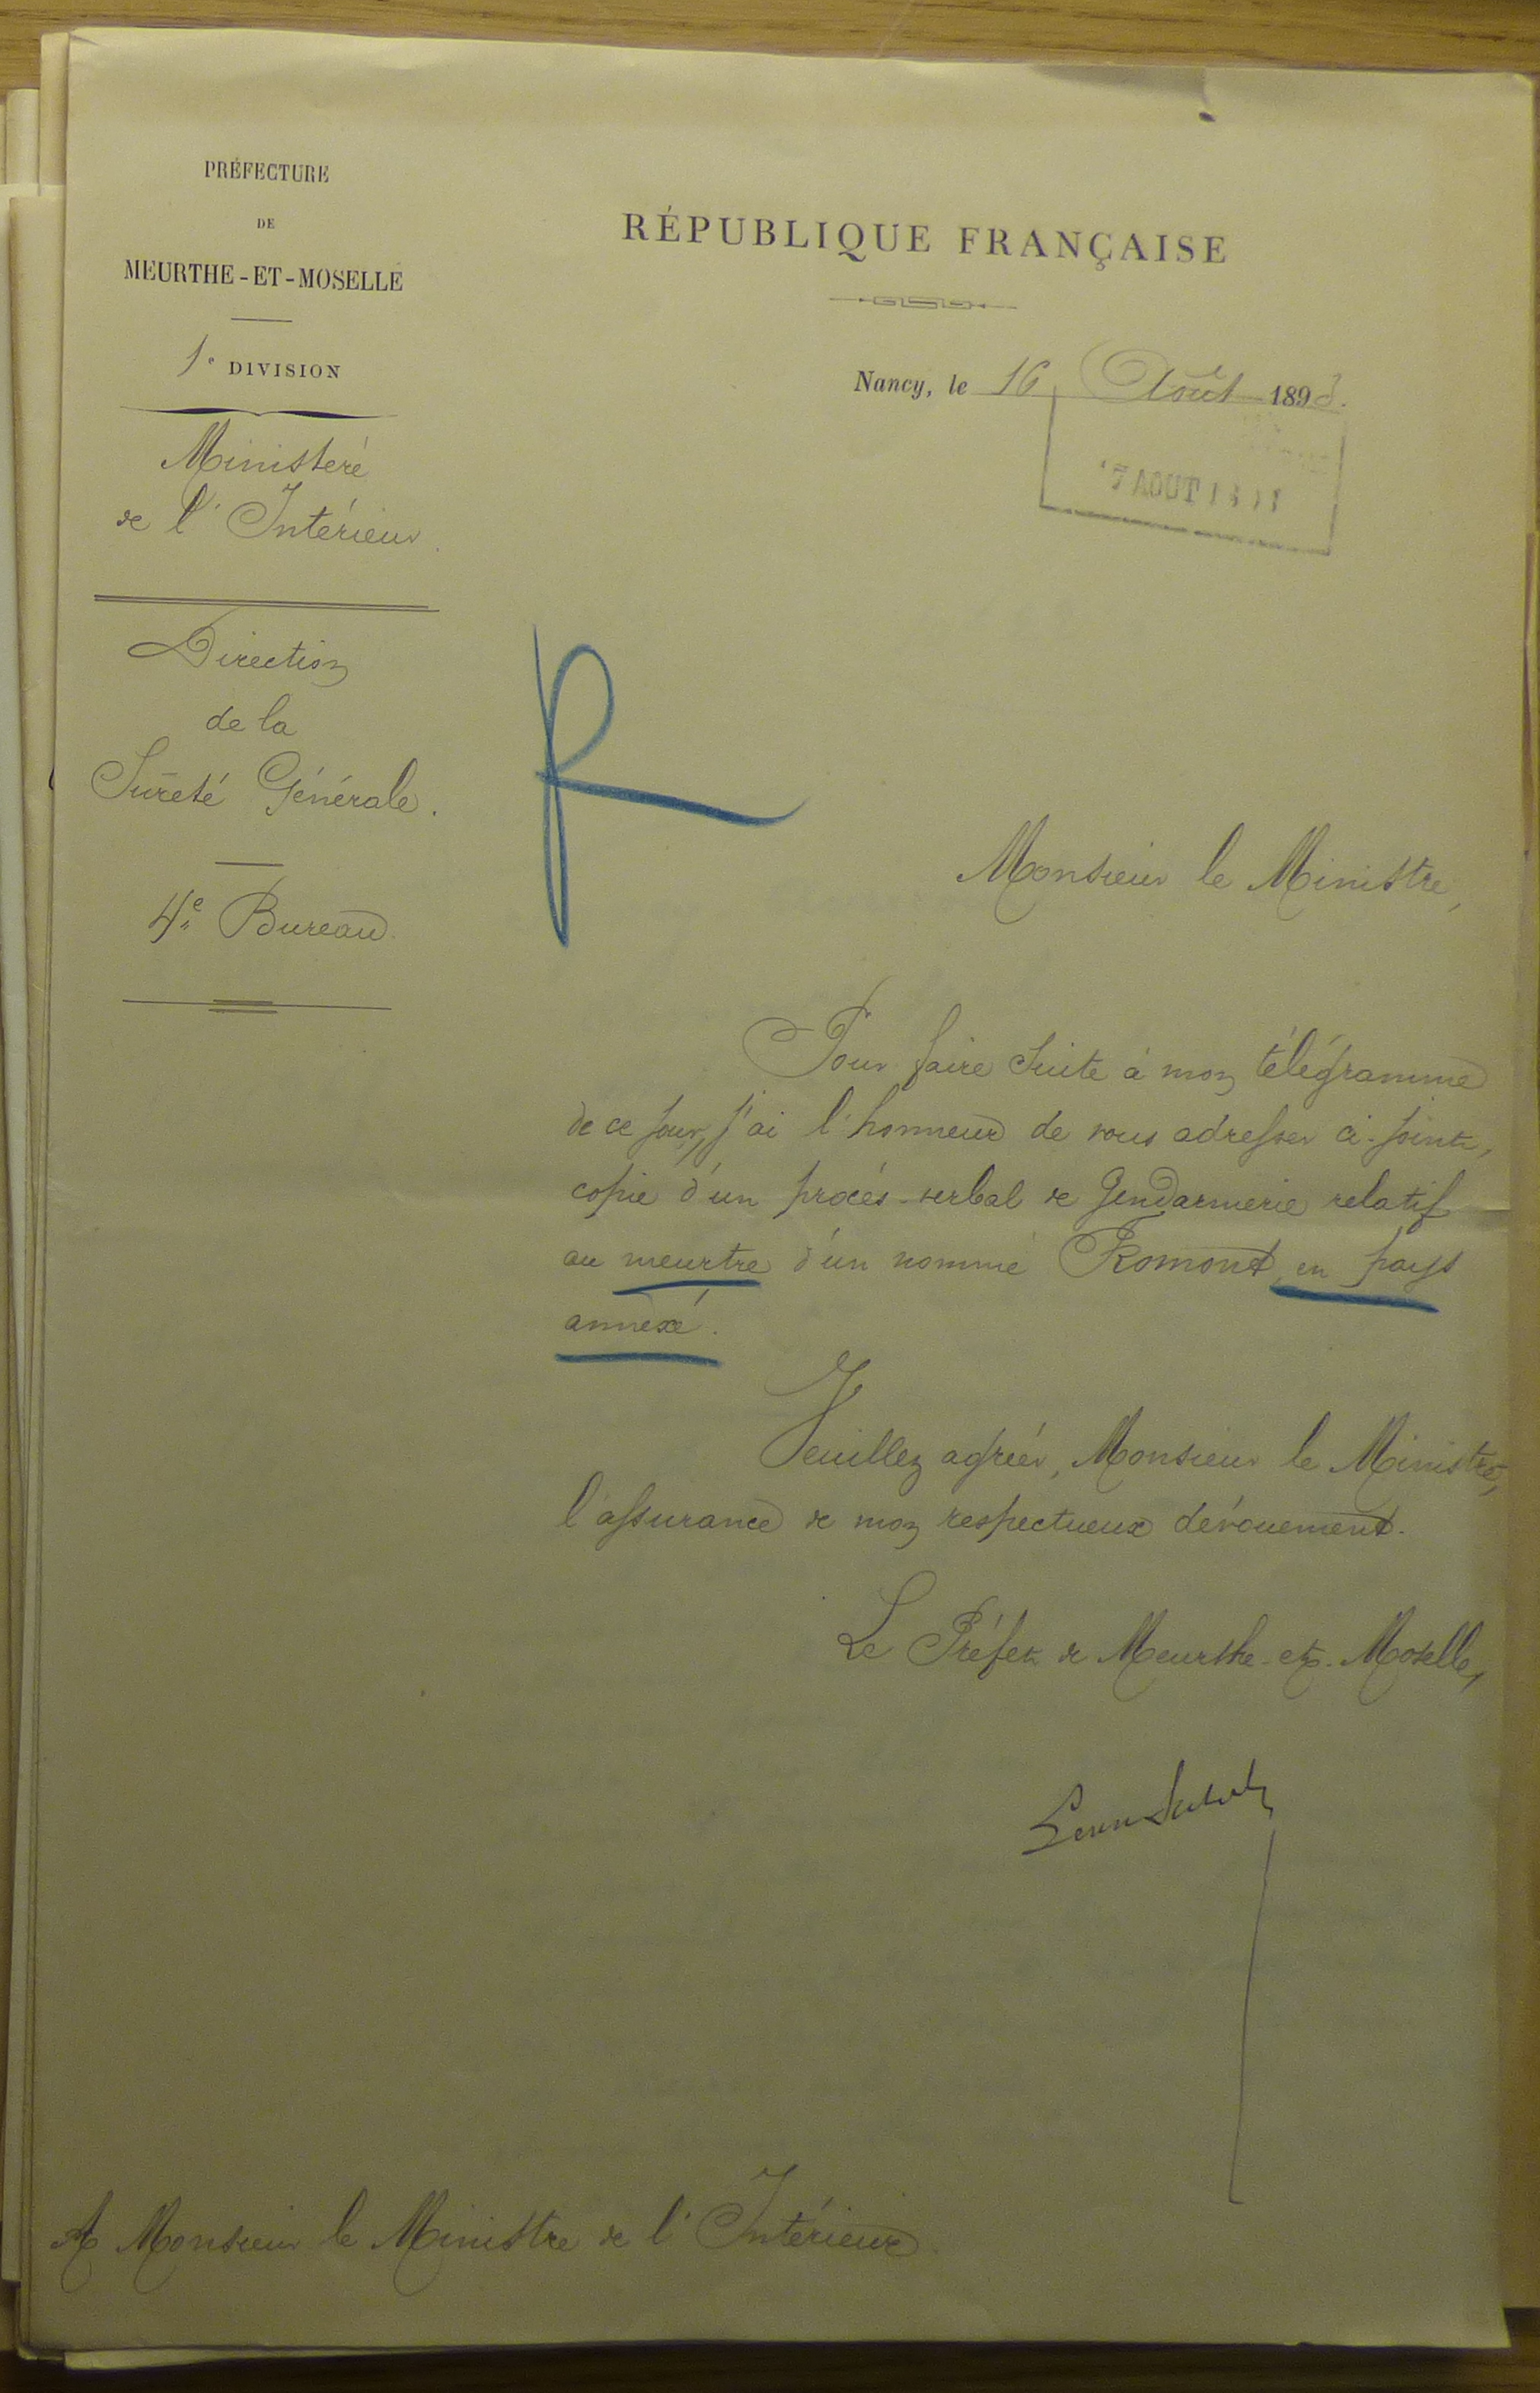 PRÉFECTURE
DE
MEURTHE-ET-MOSELLE
1e DIVISION
Ministère
de l'Intérieur
Direction
de la
Sûreté Générale.
4e Bureau
RÉPUBLIQUE FRANÇAISE
Nancy, le 16 Août 1893.
AOUT
R
Monsieur le Ministre,
Pour faire suite à mon télégramme
de ce jour, j'ai l'honneur de vous adresser ci-joint,
copie d'un procès-verbal de Gendarmerie relatif
au meurtre d'un nommé Romont en pays
annexé.
Veuillez agréer, Monsieur le Ministre,
l'assurance de mon respectueux dévouement.
Le Préfet de Meurthe-et-Moselle,
A Monsieur le Ministre de l'Intérieur